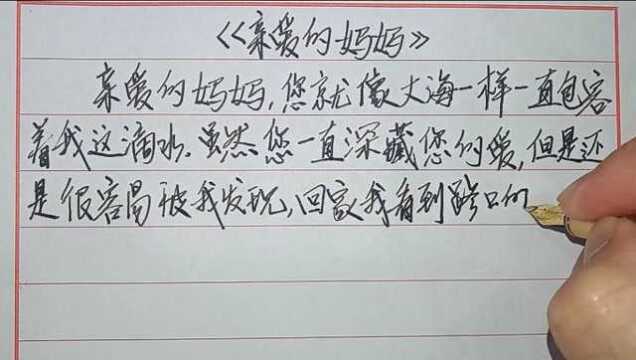 《亲爱的妈妈》
亲爱的妈妈,您就像大海一样一直包容
着我这滴水.虽然您一直深藏您的爱,但是还
是很容易被我发现,回家我看到路口的